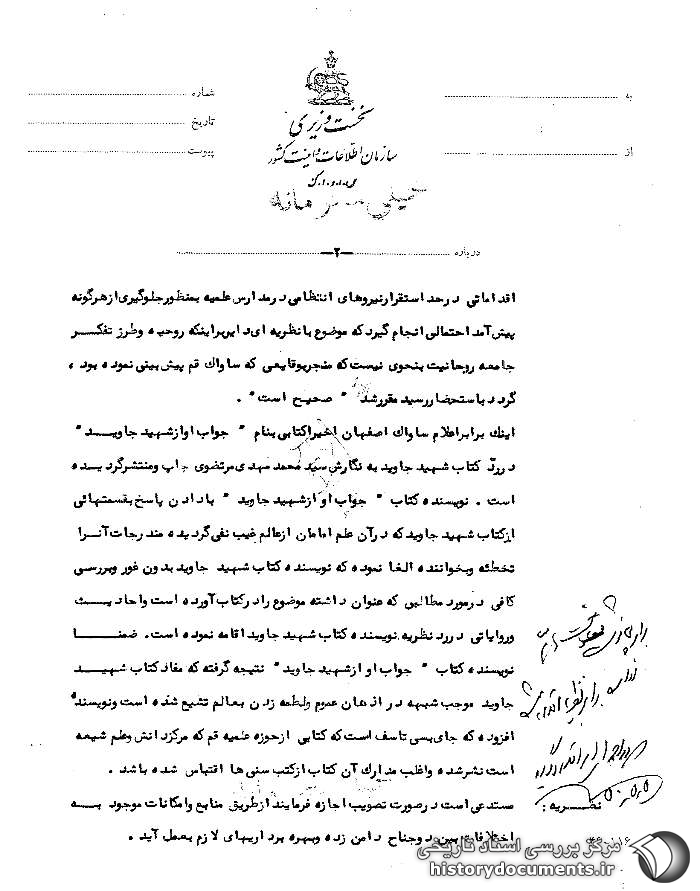 شماره
تاریخ
پیوست
به
از
نخست وزیری
سازمان اطلاعات و امنیت کشور
س.ا.و.ا.ک
خیلی محرمانه
درباره
-۲-
اقداماتی در حد استقرار نیروهای انتظامی در مدارس علمیه بمنظور جلوگیری از هرگونه
پیش آمد احتمالی انجام گیرد که موضوع با نظریه ای دایر براینکه روحیه و طرز تفکر
جامعه روحانیت بنحوی نیست که منجر بوقایعی که ساواک قم پیش بینی نموده بود ،
گردد باستحضار رسید مقرر شد " صحیح است " .
اینک برابر اعلام ساواک اصفهان اخیرا کتابی بنام " جواب او از شهید جاوید "
در رد کتاب شهید جاوید به نگارش سید محمد مهدی مرتضوی چاپ و منتشر گردیده
است . نویسنده کتاب " جواب او از شهید جاوید " با دادن پاسخ بقسمتهائی
از کتاب شهید جاوید که در آن علم امامان از عالم غیب نفی گردیده مندرجات آنرا
تخطئه و بخواننده القا نموده که نویسنده کتاب شهید جاوید بدون غور و بررسی
کافی در مورد مطالبی که عنوان داشته موضوع را در کتاب آورده است و احادیث
و روایاتی در رد نظریه نویسنده کتاب شهید جاوید اقامه نموده است . ضمنا
نویسنده کتاب " جواب او از شهید جاوید " نتیجه گرفته که مفاد کتاب شهید
جاوید موجب شبهه در اذهان عموم و لطمه زدن بعالم تشیع شده است و نویسنده
افزوده که جای بسی تاسف است که کتابی از حوزه علمیه قم که مرکز دانش و علم شیعه
است نشر شده و اغلب مدارک آن کتاب از کتب سنی ها اقتباس شده باشد .
نظریه :
مستدعی است در صورت تصویب اجازه فرمایند از طریق منابع و امکانات موجود به
اختلافات بین دو جناح دامن زده و بهره برداریهای لازم بعمل آید .
مرکز بررسی اسناد تاریخی
historydocuments.ir